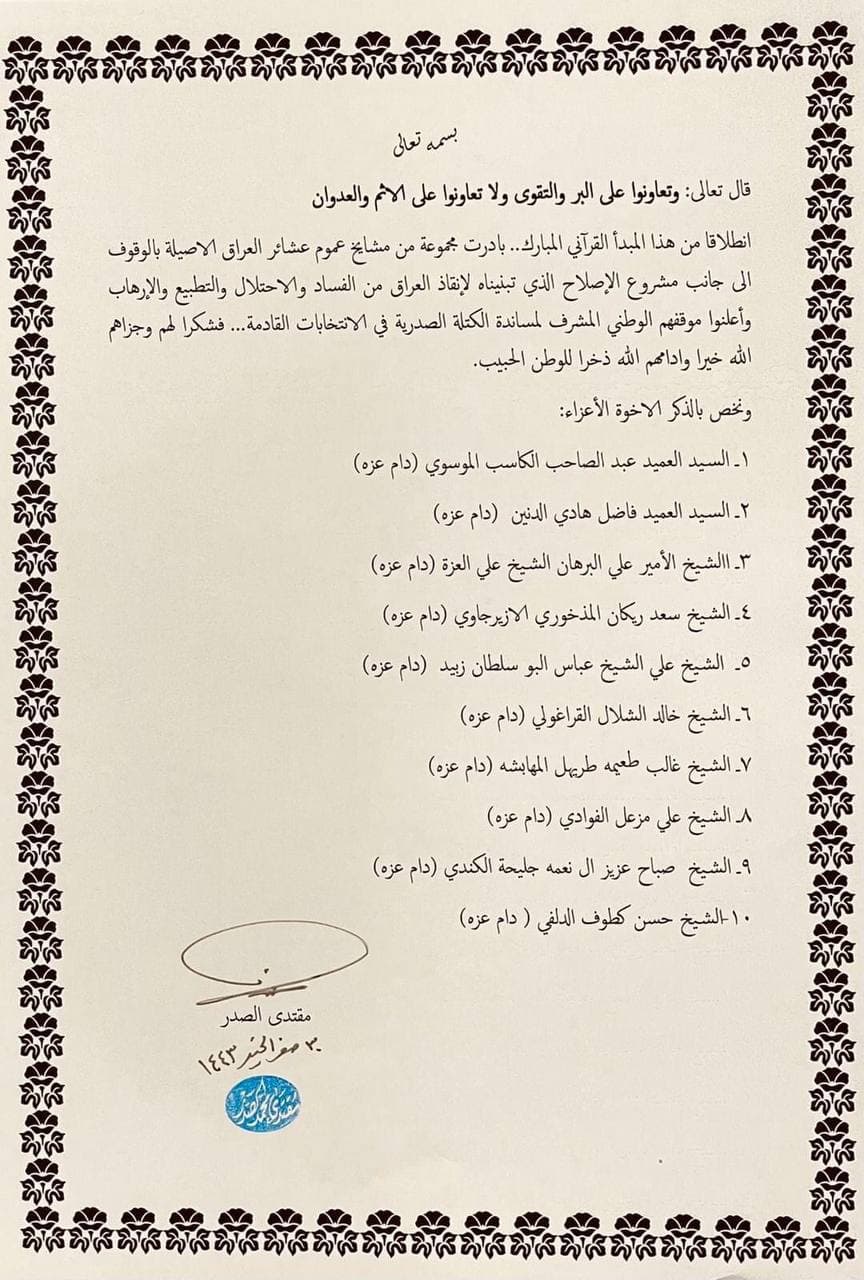 بسمه تعالى
قال تعالى: وتعاونوا على البر والتقوى ولا تعاونوا على الاثم والعدوان
انطلاقا من هذا المبدأ القرآني المبارك.. بادرت مجموعة من مشايخ عموم عشائر العراق الاصيلة بالوقوف
الى جانب مشروع الإصلاح الذي تبنيناه لإنقاذ العراق من الفساد والاحتلال والتطبيع والإرهاب
وأعلنوا موقفهم الوطني المشرف لمساندة الكتلة الصدرية في الانتخابات القادمة... فشكرا لهم وجزاهم
الله خيرا وادامهم الله ذخرا للوطن الحبيب.
ونخص بالذكر الاخوة الأعزاء:
١ـ السيد العميد عبد الصاحب الكاسب الموسوي (دام عزه)
٢ـ السيد العميد فاضل هادي الدنين (دام عزه)
٣ـ االشيخ الأمير علي البرهان الشيخ علي العزة (دام عزه)
٤ـ الشيخ سعد ريكان المذخوري الازيرجاوي (دام عزه)
٥ـ الشيخ علي الشيخ عباس البو سلطان زبيد (دام عزه)
٦ـ الشيخ خالد الشلال القراغولي (دام عزه)
٧ـ الشيخ غالب طعيمه طريهل المهابشه (دام عزه)
٨ـ الشيخ علي مزعل الفوادي (دام عزه)
٩ـ الشيخ صباح عزيز ال نعمه جليحة الكندي (دام عزه)
١٠-الشيخ حسن كطوف الدلفي ( دام عزه)
مقتدى الصدر
صفر الخير ١٤٤٣
مقتدى محمد الصدر